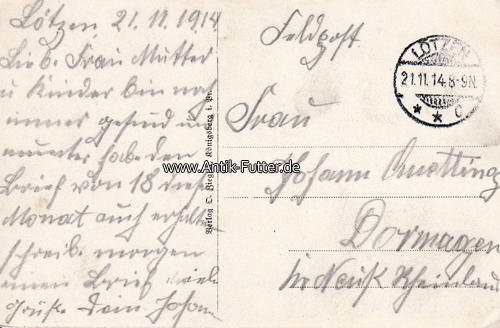 Lötzen 21.11.1914
Lieb. Frau Mutter
u Kinder bin noch
immer gesund und
munter habe den
Brief von 18 dies
Monat auch erhalten
schreibe morgen
einen Brief viele
Grüße Dein Johann
Verlag O. Königsberg i. Pr.
Feldpost
LÖTZEN
21.11.14.8-9N.
* * c
Frau
Johann
Dormagen
bei Neuß Rheinland
www.Antik-Futter.de